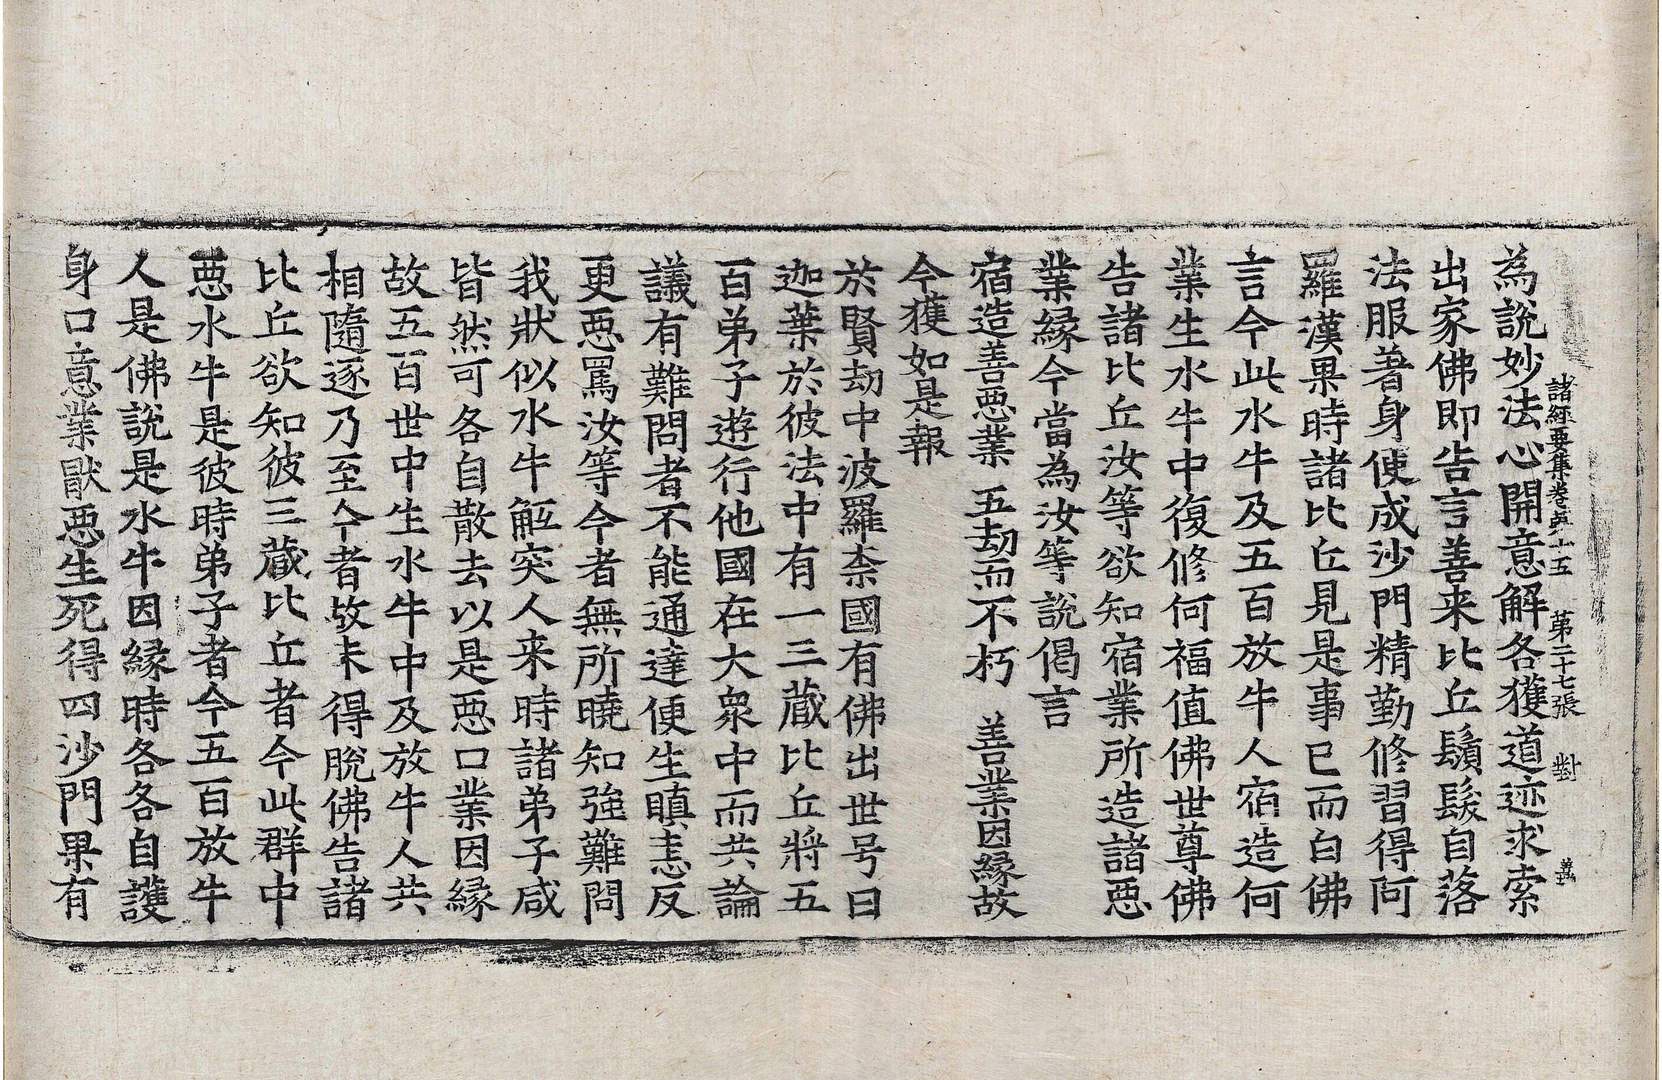 諸經要集卷第十五　第二十七張　對
為說妙法心開意解各獲道迹求索
出家佛即告言善来比丘鬚髮自落
法服著身便成沙門精勤修習得阿
羅漢果時諸比丘見是事已而白佛
言今此水牛及五百放牛人宿造何
業生水牛中復修何福值佛世尊佛
告諸比丘汝等欲知宿業所造諸惡
業緣今當為汝等說偈言
宿造善惡業　五劫而不朽　善業因緣故
今獲如是報
於賢劫中波羅柰國有佛出世号曰
迦葉於彼法中有一三藏比丘將五
百弟子遊行他國在大衆中而共論
議有難問者不能通達便生瞋恚反
更惡罵汝等今者無所曉知強難問
我狀似水牛觝突人来時諸弟子咸
皆然可各自散去以是惡口業因緣
故五百世中生水牛中及放牛人共
相隨逐乃至今者故未得脫佛告諸
比丘欲知彼三藏比丘者今此群中
惡水牛是彼時弟子者今五百放牛
人是佛說是水牛因緣時各各自護
身口意業猒惡生死得四沙門果有